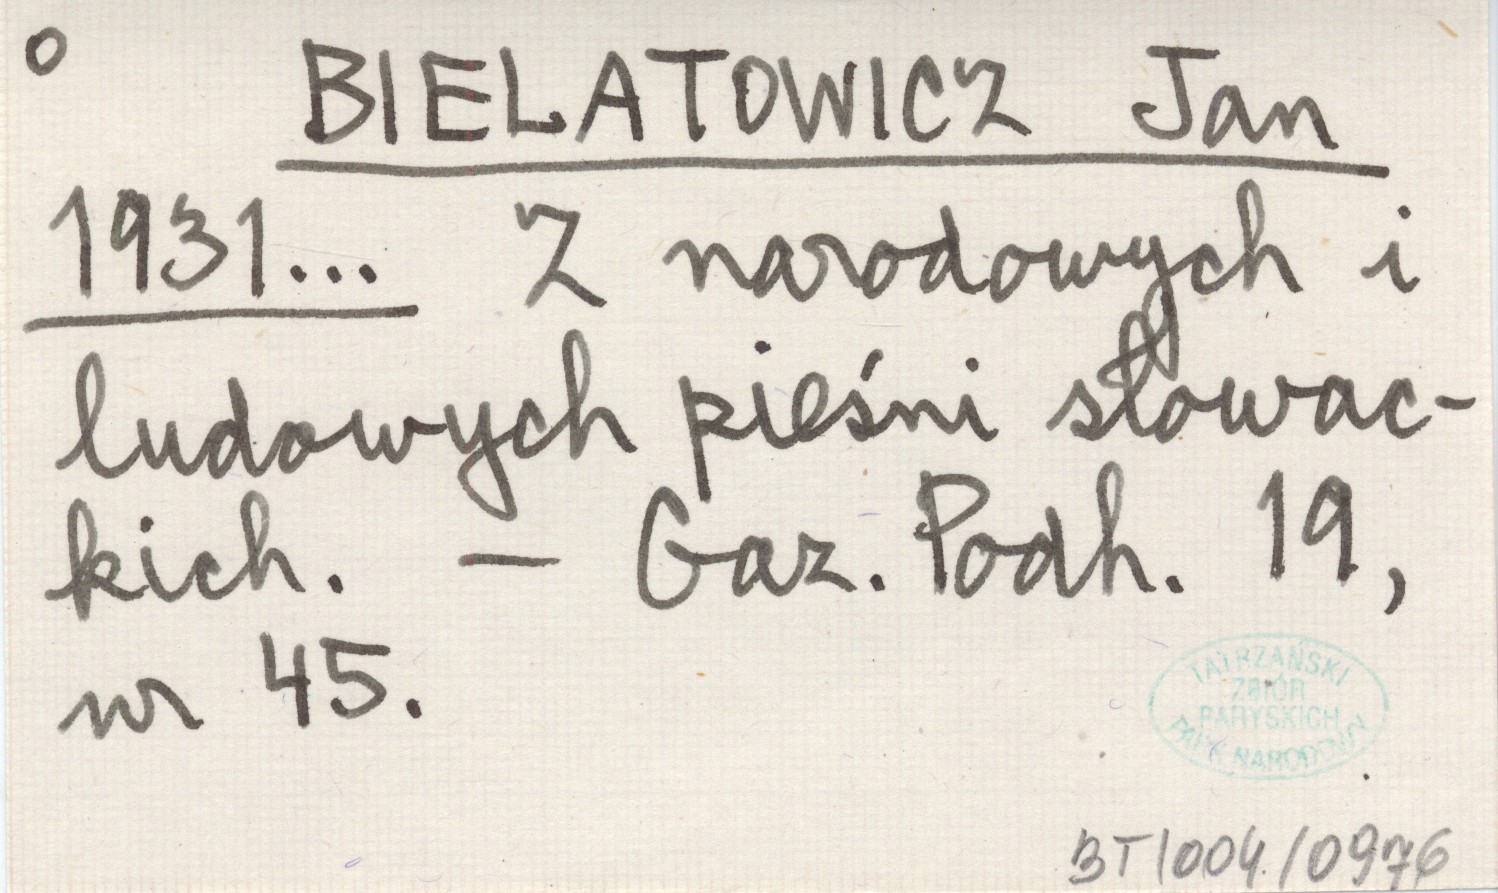 o BIELATOWICZ Jan
1931... Z narodowych i
ludowych pieśni słowac-
kich. — Gaz. Podh. 19,
nr 45.
TATRZAŃSKI
ZBIÓR
PARYSKICH
PARK NARODOWY
BT/004/0976